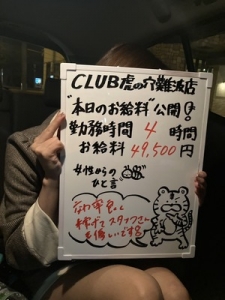 CLUB虎の穴難波店
"本日のお給料"公開!
勤務時間 4 時間
お給料 49,500円
女性からの
ひと言
稼げて スタッフさん
も優しいです